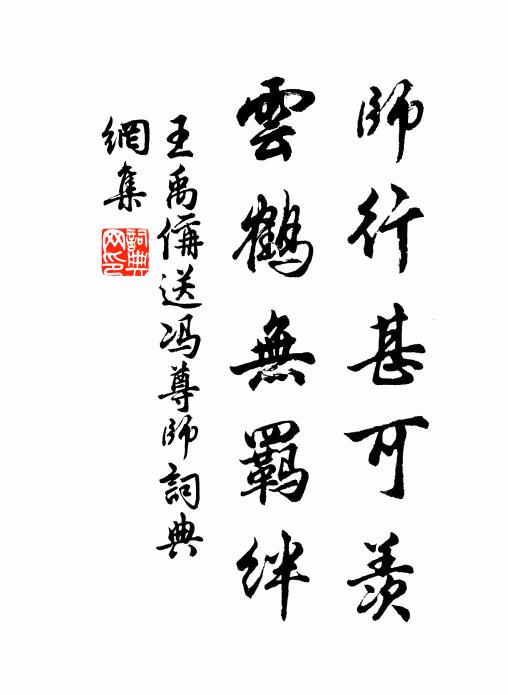 師行甚可羨
雲鶴無羈絆
王禹偁送冯尊師詞典
網集
詞典網印